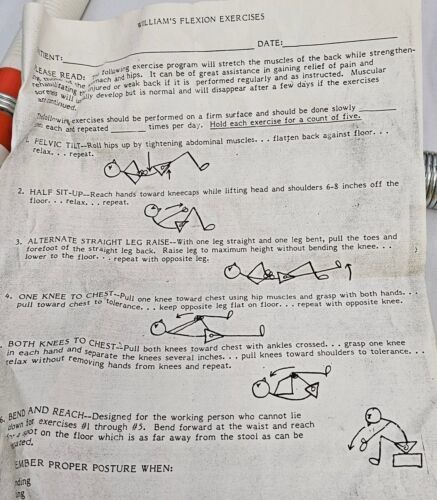 WILLIAM'S FLEXION EXERCISES
DATE:
PLEASE READ: The following exercise program will stretch the muscles of the back while strengthen-
stomach and hips. It can be of great assistance in gaining relief of pain and
rehabilitating the injured or weak back if it is performed regularly and as instructed. Muscular
soreness will usually develop but is normal and will disappear after a few days if the exercises
are continued.
The following exercises should be performed on a firm surface and should be done slowly
each and repeated times per day. Hold each exercise for a count of five.
1. PELVIC TILT--Roll hips up by tightening abdominal muscles... flatten back against floor...
relax... repeat.
2. HALF SIT-UP--Reach hands toward kneecaps while lifting head and shoulders 6-8 inches off the
floor... relax... repeat.
3. ALTERNATE STRAIGHT LEG RAISE--With one leg straight and one leg bent, pull the toes and
forefoot of the straight leg back. Raise leg to maximum height without bending the knee...
lower to the floor... repeat with opposite leg.
4. ONE KNEE TO CHEST--Pull one knee toward chest using hip muscles and grasp with both hands...
pull toward chest to tolerance... keep opposite leg flat on floor... repeat with opposite knee.
BOTH KNEES TO CHEST--Pull both knees toward chest with ankles crossed... grasp one knee
in each hand and separate the knees several inches... pull knees toward shoulders to tolerance...
relax without removing hands from knees and repeat.
6. BEND AND REACH--Designed for the working person who cannot lie
down for exercises #1 through #5. Bend forward at the waist and reach
for a spot on the floor which is as far away from the stool as can be
EMBER PROPER POSTURE WHEN: